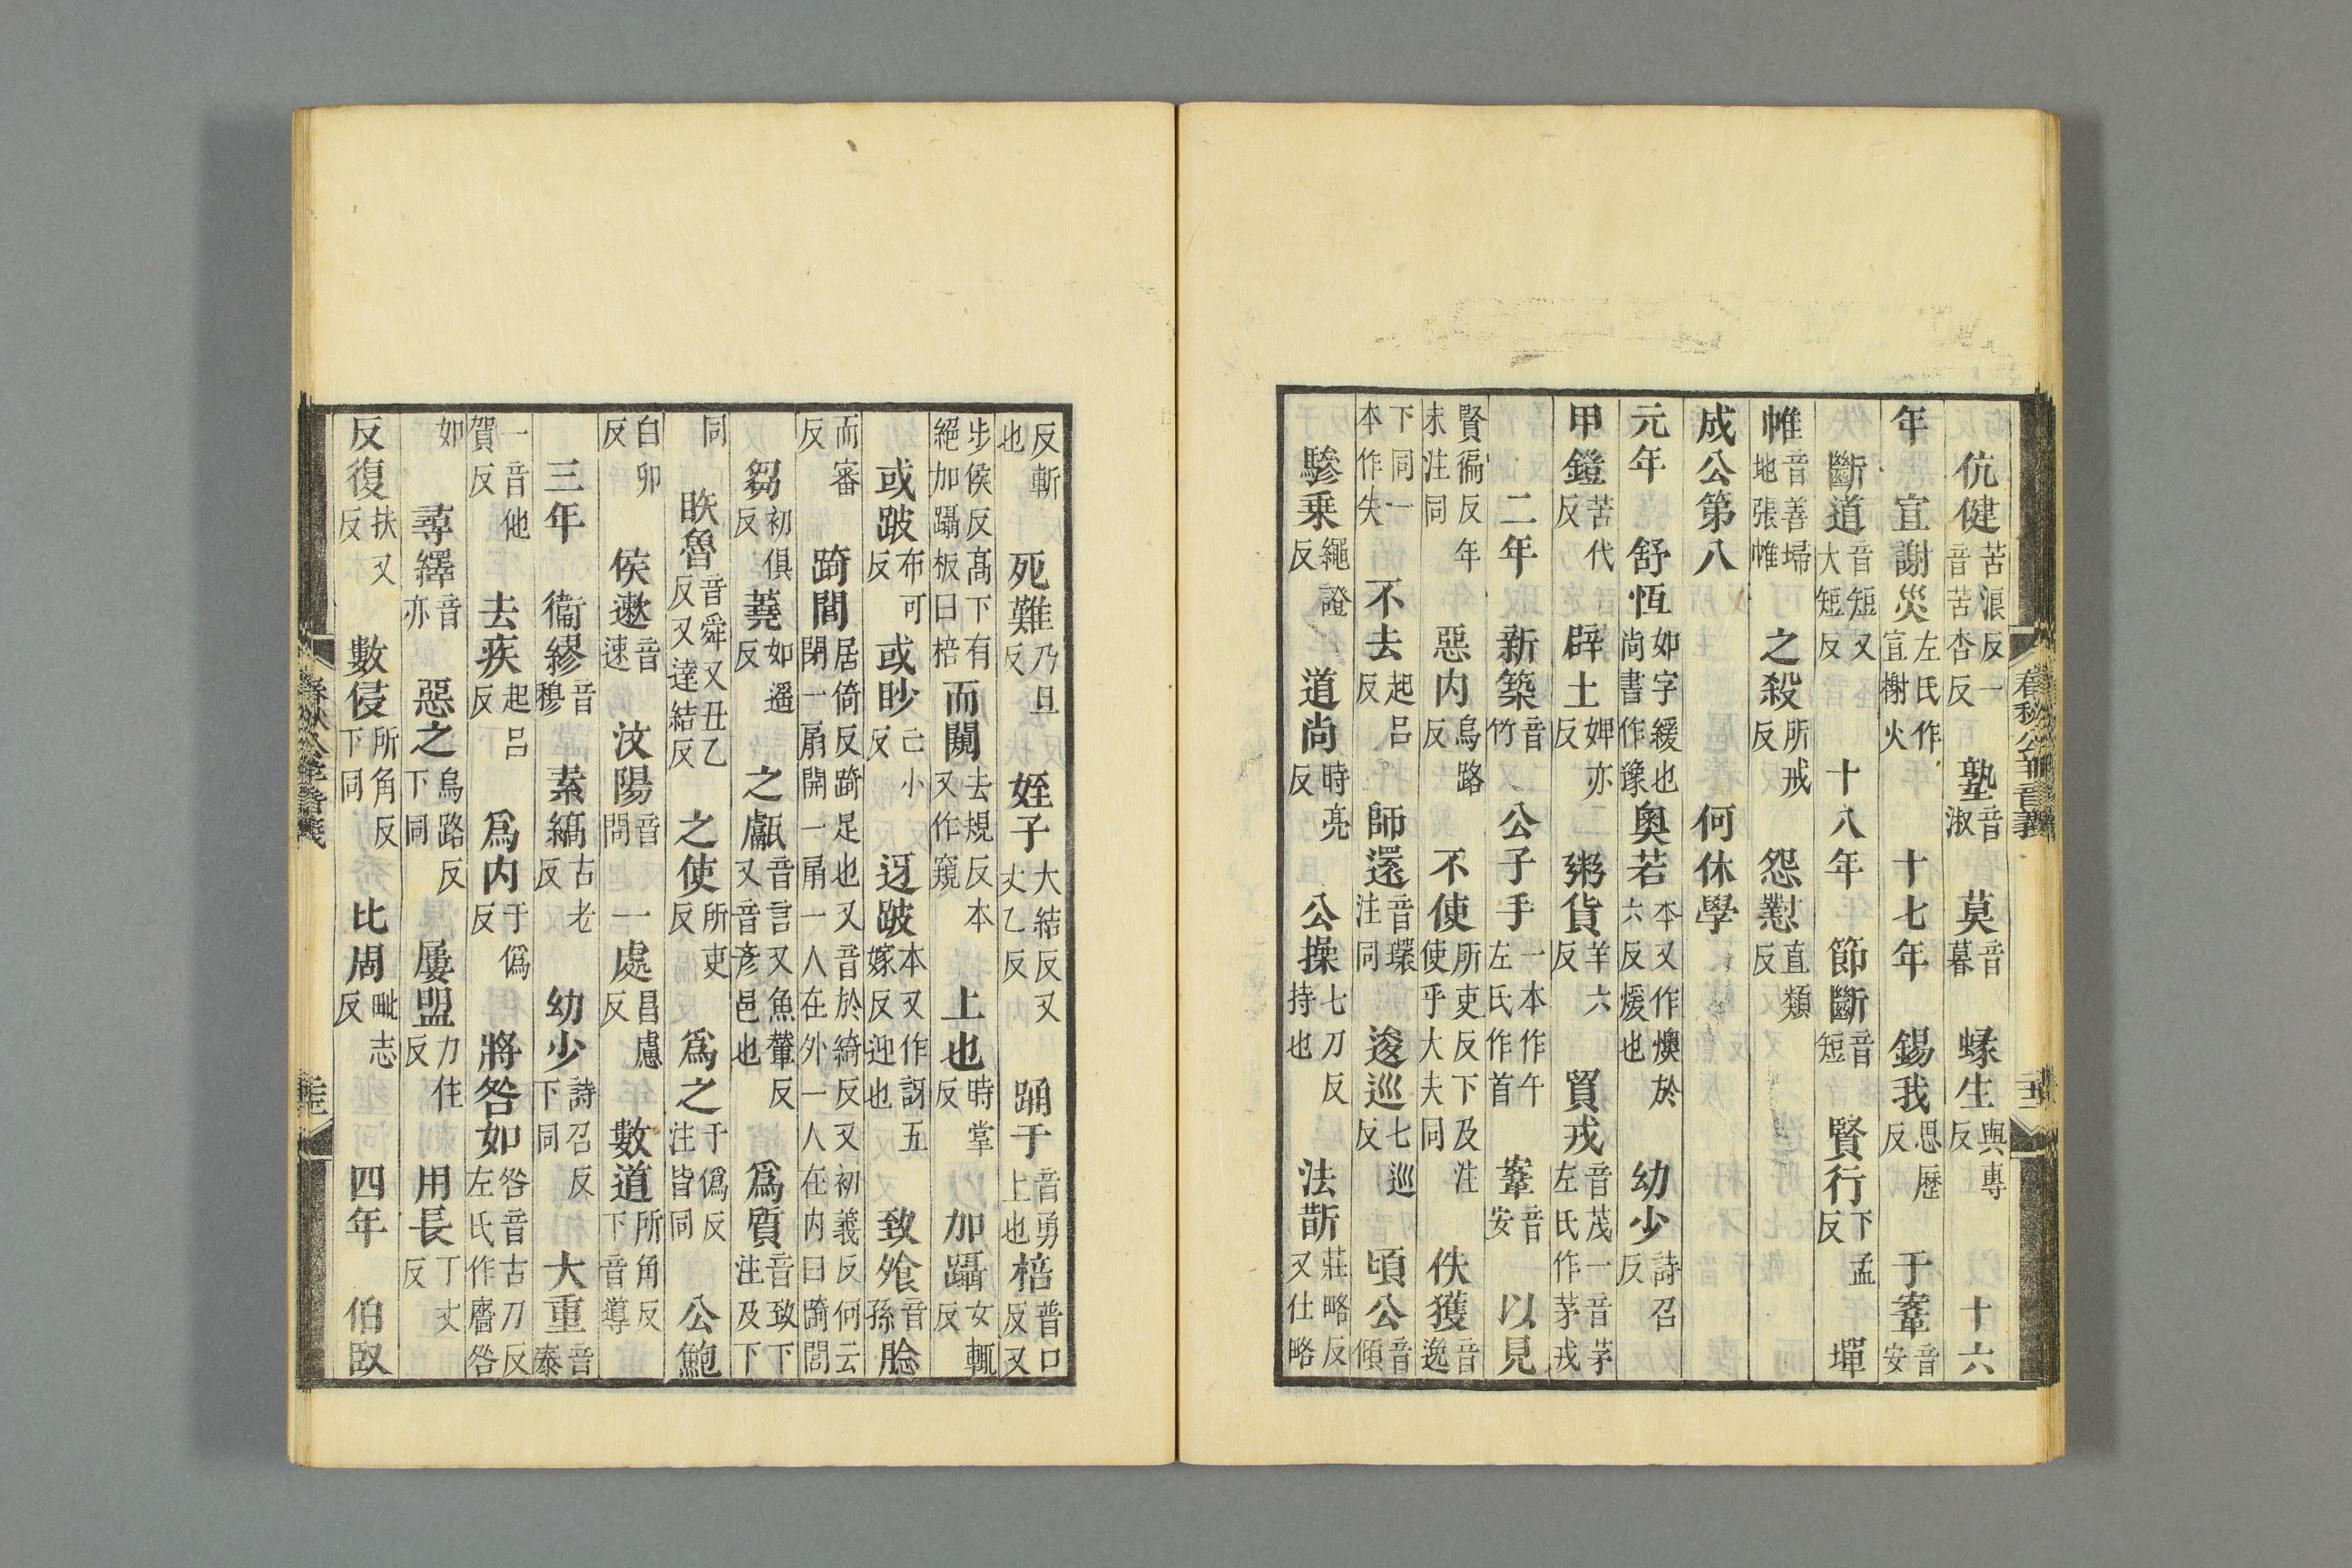 伉健苦浪反一音苦杏反 塾音淑 莫音暮 蝝生與專反 十六
年 宣謝災左氏作宣榭火 十七年 錫我思歷反 于牽音安
斷道音短又大短反 十八年 節斷音短 賢行下孟反 墠
帷音善埽地張帷 之殺所戒反 怨懟直類反
成公第八 何休學
元年 舒恆如字緩也尚書作豫 奥若本又作燠於六反煖也 幼少詩召反
甲鎧苦代反 辟土婢亦反 粥貨羊六反 貿戎音茂一音茅左氏作茅戎
二年 新築音竹 公子手一本作午左氏作首 鞌音安 以見
賢徧反年末注同 惡内烏路反 不使所吏反下及注使乎大夫同 佚獲音逸
下同一本作失 不去起吕反 師還音環注同 逡巡七巡反 頃公音傾
驂乗繩證反 道尚時亮反 公操七刀反持也 法斮莊略反又仕略
反斬也 死難乃旦反 姪子大結反又丈乙反 踊于音勇上也 棓普口反又
步侯反髙下有絕加躡板曰棓 而闚去規反本又作窺 上也時掌反 加躡女輒反
或跛布可反 或眇亡小反 迓跛本又作訝五嫁反迎也 致飱音孫 脍
而審反 踦閭居倚反踦足也又音於綺反又初義反何云閉一扇開一扇一人在外一人在内曰踦閭
芻初俱反 蕘如遥反 之甗音言又魚輦反又音彥邑也 爲質音致下注及下
同 眣魯音舜又丑乙反又達結反 之使所吏反 爲之于僞反注皆同 公鮑
白卯反 侯遬音速 汶陽音問 一處昌慮反 數道所角反下音導
三年 衞繆音穆 素縞古老反 幼少詩召反下同 大重音泰
一音他賀反 去疾起吕反 爲内于僞反 將咎如咎音古刀反左氏作廧咎
如 尋繹音亦 惡之烏路反下同 屢盟力住反 用長丁丈反
反復扶又反 數侵所角反下同 比周毗志反 四年 伯臤
春秋公羊音義
春秋公羊音義